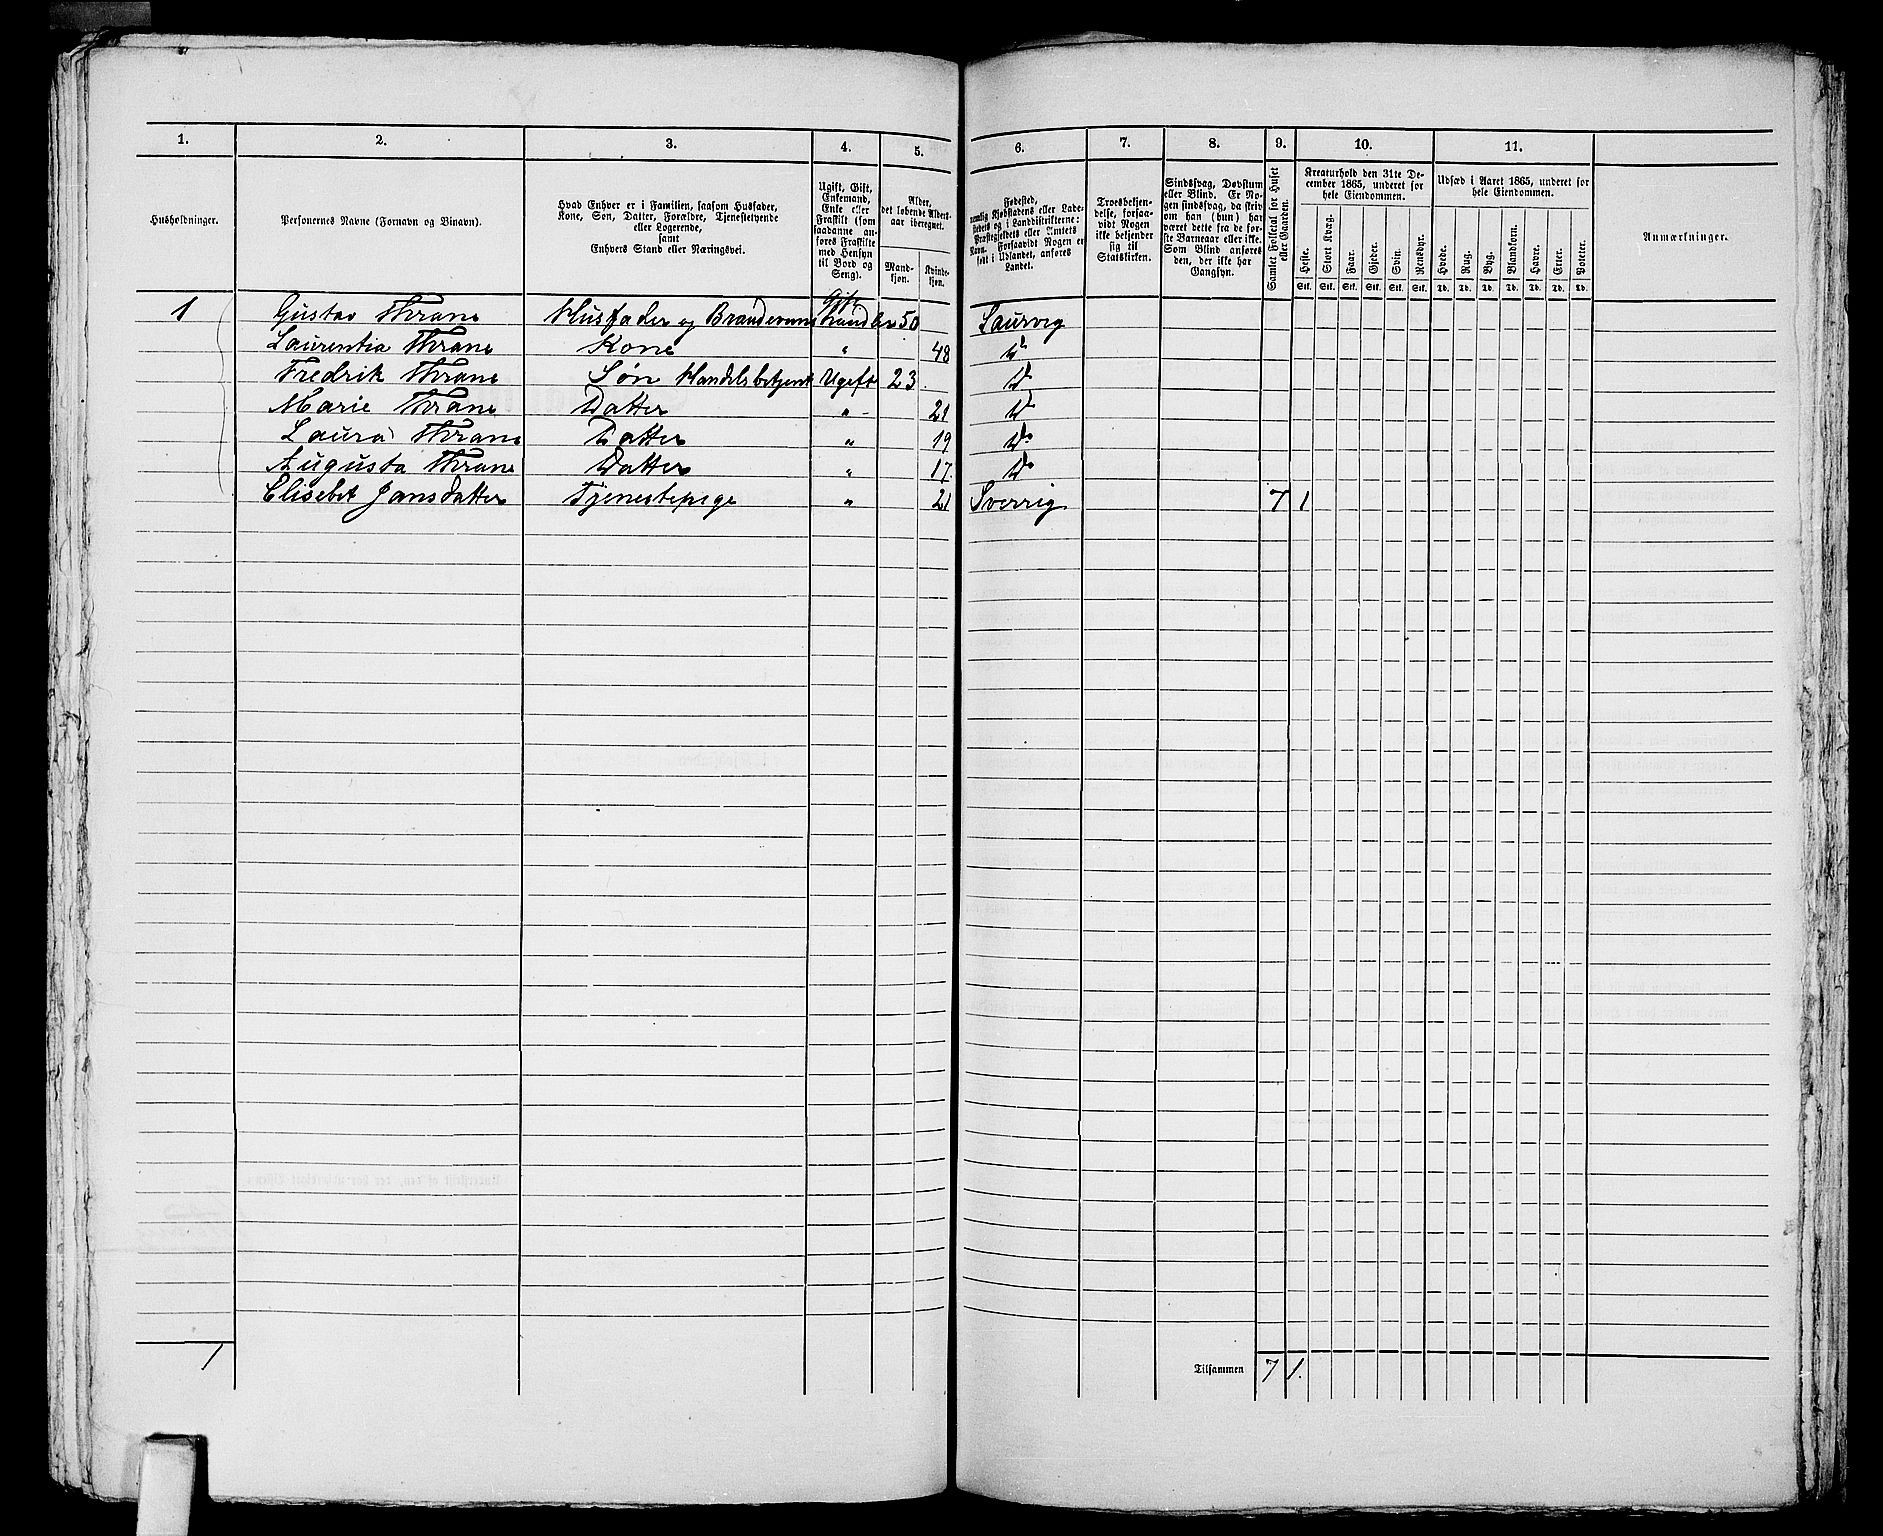 1. 2. 3. 4. 5. 6. 7. 8. 9. 10. 11.
Husholdninger.
Personernes Navne (Fornavn og Binavn).
Hvad Enhver er i Familien, saasom Husfader,
Kone, Søn, Datter, Forældre, Tjenestetyende
eller Logerende,
samt
Enhvers Stand eller Næringsvei.
Ugift, Gift,
Enkemand,
Enke eller
Fraskilt (som
saadanne an-
føres Fraskilte
med Hensyn
til Bord og
Seng).
Alder,
det løbende Alders-
aar iberegnet.
Mand-
kjøn.
Kvinde-
kjøn.
Fødested,
nemlig Kjøbstadens eller Lade-
stedets og i Landdistrikterne:
Præstegjeldets eller Amtets
Navn. Forsaavidt Nogen er
født i Udlandet, anføres
Landet.
Troesbekjen-
delse, forsaa-
vidt Nogen
ikke bekjender
sig til
Statskirken.
Sindssvag, Døvstum
eller Blind. Er No-
gen sindssvag, da skriv
om han (hun) har
været dette fra de før-
ste Barneaar eller ikke.
Som Blind anføres
den, der ikke har
Gangsyn.
Samlet Folketal for Huset
eller Gaarden.
Kreaturhold den 31te De-
cember 1865, underet for
hele Eiendommen.
Heste. Stort Kvæg. Faar. Gjeder. Svin. Rensdyr.
Stk. Stk. Stk. Stk. Stk. Stk.
Udsæd i Aaret 1865, underet for
hele Eiendommen.
Hvede. Rug. Byg. Blandkorn. Havre. Erter. Poteter.
Td. Td. Td. Td. Td. Td. Td.
Anmærkninger.
1 Gustav Thrane Husfader og Brændevins handler Gift 50 Laurvig
Laurentia Thrane Kone " 48 Do
Fredrik Thrane Søn Handelsbetjent Ugift 23 Do
Marie Thrane Datter " 21 Do
Laura Thrane Datter " 19 Do
Augusta Thrane Datter " 17. Do
Elisebet Jansdatter Tjenestepige " 21 Sverrig 7 1
1 Tilsammen 7 1.